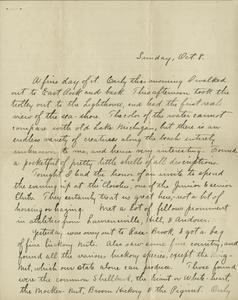 Sunday, Oct. 8.
A fine day of it. Early this morning I walked
out to East Rock and back. This afternoon took the
trolley out to the Lighthouse, and had the first real
view of the sea-shore. The color of the water cannot
compare with old Lake Michigan, but there is an
endless variety of creatures along the beach entirely
unknown to me, and hence very interesting. Found
a pocketful of pretty little shells of all descriptions.
Tonight I had the honor of an invite to spend
the evening up at the Cloister, one of the Junior & senior
Clubs. They certainly treat us great here, not a bit of
hazing or
Met a lot of fellows prominent
in athletics from Lawrenceville, Hill, & Andover.
Yesterday was away out to Race Brook, & got a bag
of fine hickory nuts. Also saw some fine country, and
found all the various hickory species, except the
Nut, which our state alone can produce. Those found
were the common Shellbark, the
the Mocker-Nut, Broom Hickory & the Pignut. Only